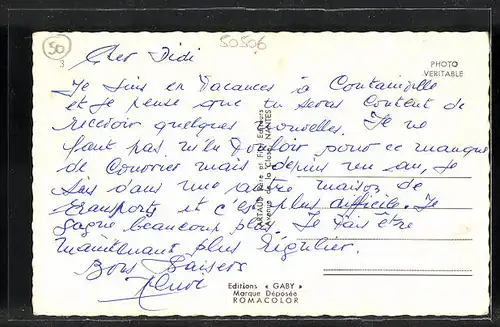 50
50506
3
Cher Didi
PHOTO
VERITABLE
Je suis en Vacances à Coutainville
et je pense que tu seras Content de
recevoir quelques nouvelles. Je ne
faut pas m'en vouloir pour ce manque
de Courrier mais depuis un an, je
suis dans une autre maison de
transports et c'est plus difficile. Je
gagne beaucoup plus. Je vais être
maintenant plus régulier.
Bons Baisers
ARTAUD Père et Fils Editeurs
Avenue de la Close NANTES
Editions « GABY »
Marque Déposée
ROMACOLOR